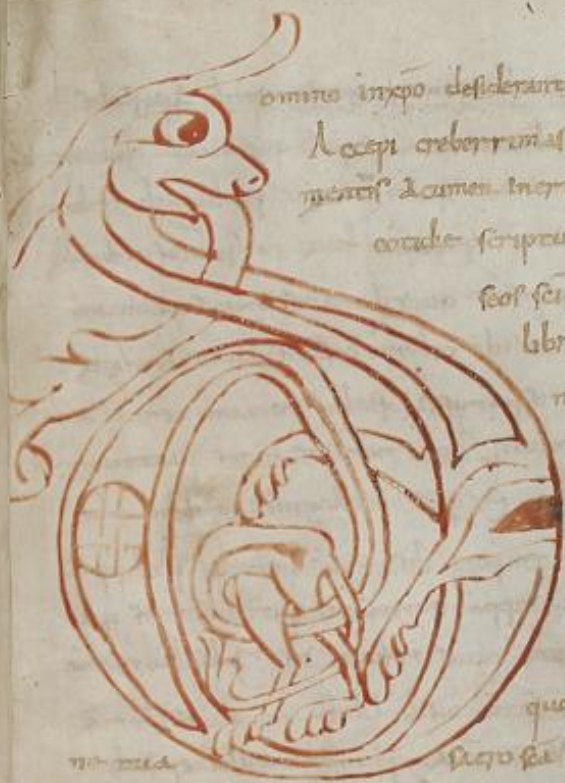 omino inxpō desiderant
Accepi creberrimas
mentis acumen inerr
cotidie scriptu
scōs sci
libr
n
que
ne mea sacro scā